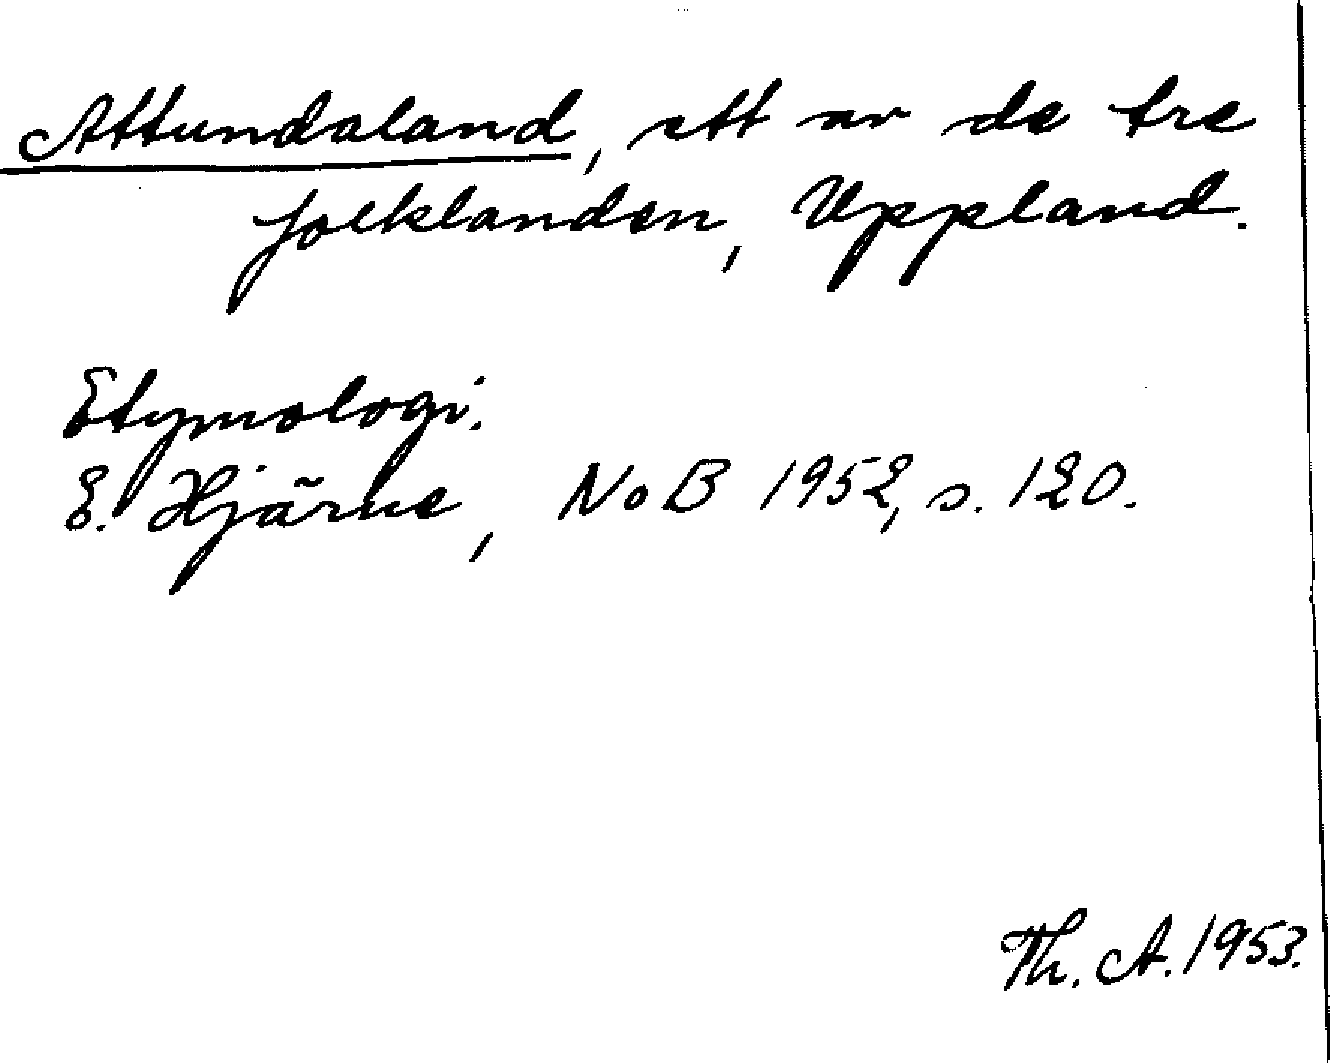 Attundaland, ett av de tre
folklanden, Uppland.
Etymologi.
E. Hjärne, NoB 1952, s. 120.
Th. A. 1953.